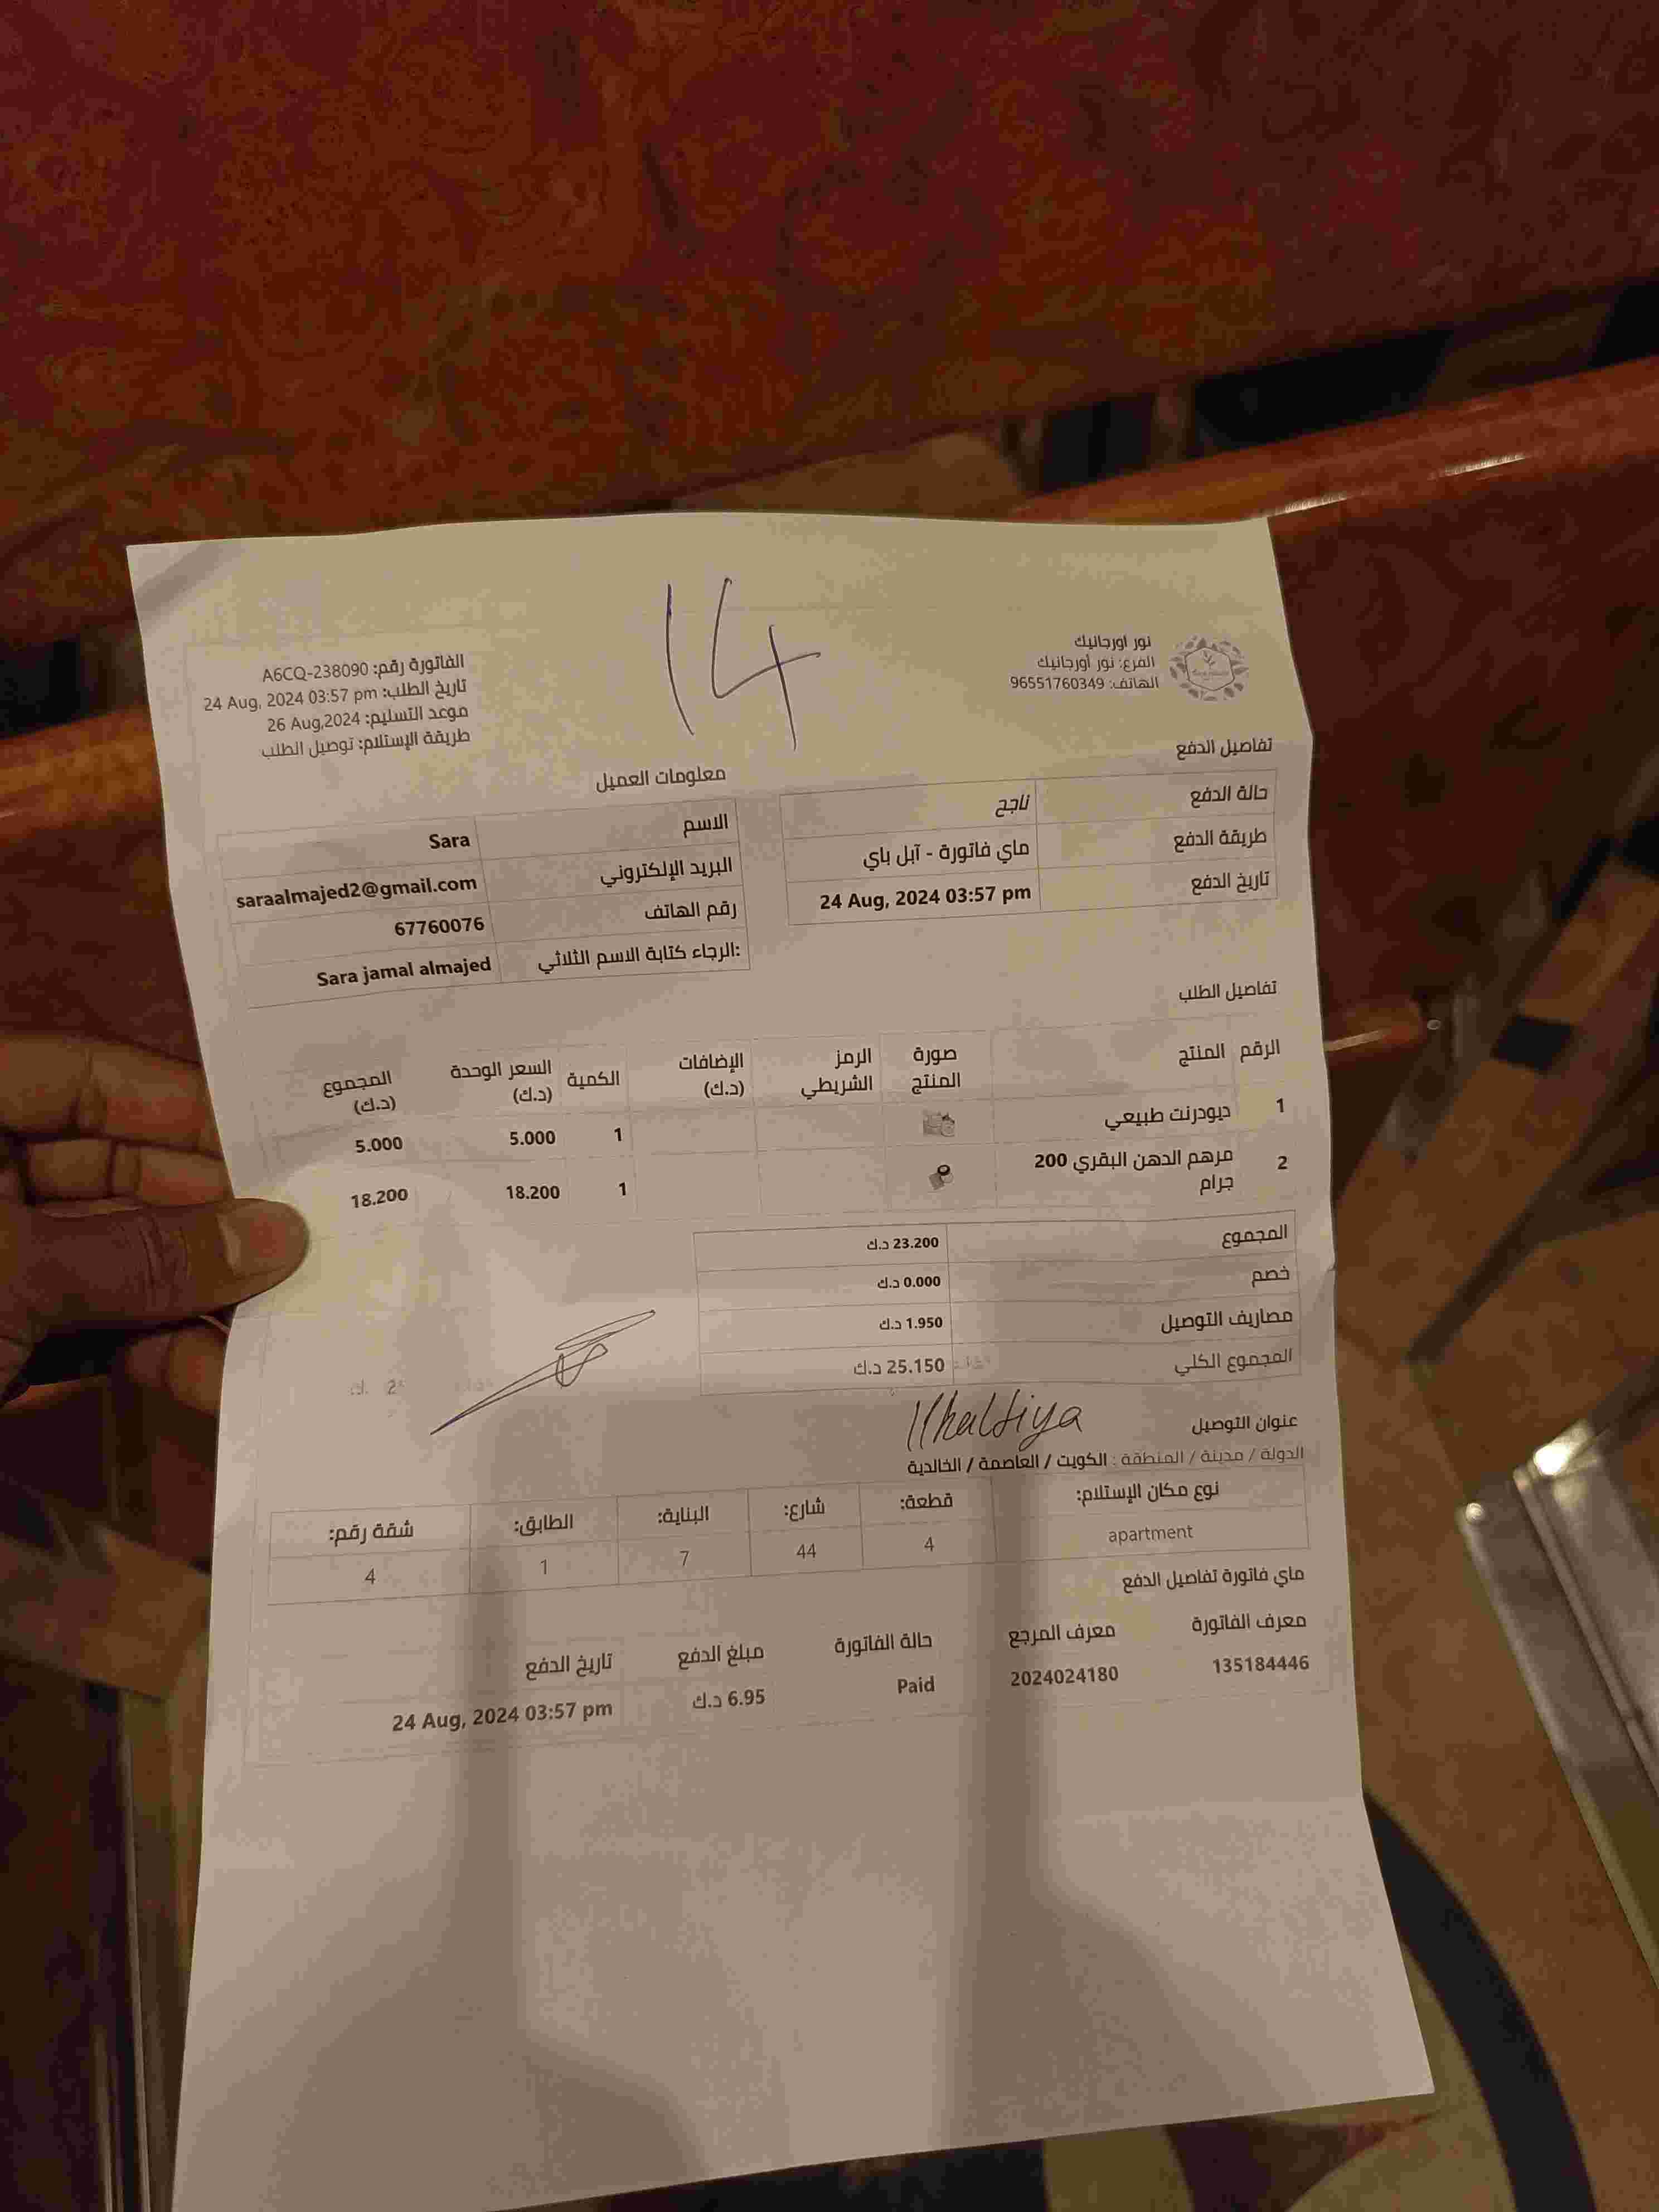 14
نور اورجانيك
الفرع: نور أورجانيك
الهاتف: 96551760349
الفاتورة رقم: A6CQ-238090
تاريخ الطلب: 24 Aug, 2024 03:57 pm
موعد التسليم: 26 Aug,2024
طريقة الإستلام: توصيل الطلب
تفاصيل الدفع
حالة الدفع ناجح
طريقة الدفع ماي فاتورة - آبل باي
تاريخ الدفع 24 Aug, 2024 03:57 pm
معلومات العميل
الاسم Sara
البريد الإلكتروني saraalmajed2@gmail.com
رقم الهاتف 67760076
الرجاء كتابة الاسم الثلاثي: Sara jamal almajed
تفاصيل الطلب
الرقم المنتج صورة المنتج الرمز الشريطي الإضافات (د.ك) الكمية السعر الوحدة (د.ك) المجموع (د.ك)
1 ديودرنت طبيعي 1 5.000 5.000
2 مرهم الدهن البقري 200 جرام 1 18.200 18.200
المجموع 23.200 د.ك
خصم 0.000 د.ك
مصاريف التوصيل 1.950 د.ك
المجموع الكلي 25.150 د.ك
عنوان التوصيل
الدولة / مدينة / المنطقة : الكويت / العاصمة / الخالدية
نوع مكان الإستلام: قطعة: شارع: البناية: الطابق: شقة رقم:
apartment 4 44 7 1 4
ماي فاتورة تفاصيل الدفع
معرف الفاتورة معرف المرجع حالة الفاتورة مبلغ الدفع تاريخ الدفع
135184446 2024024180 Paid 6.95 د.ك 24 Aug, 2024 03:57 pm